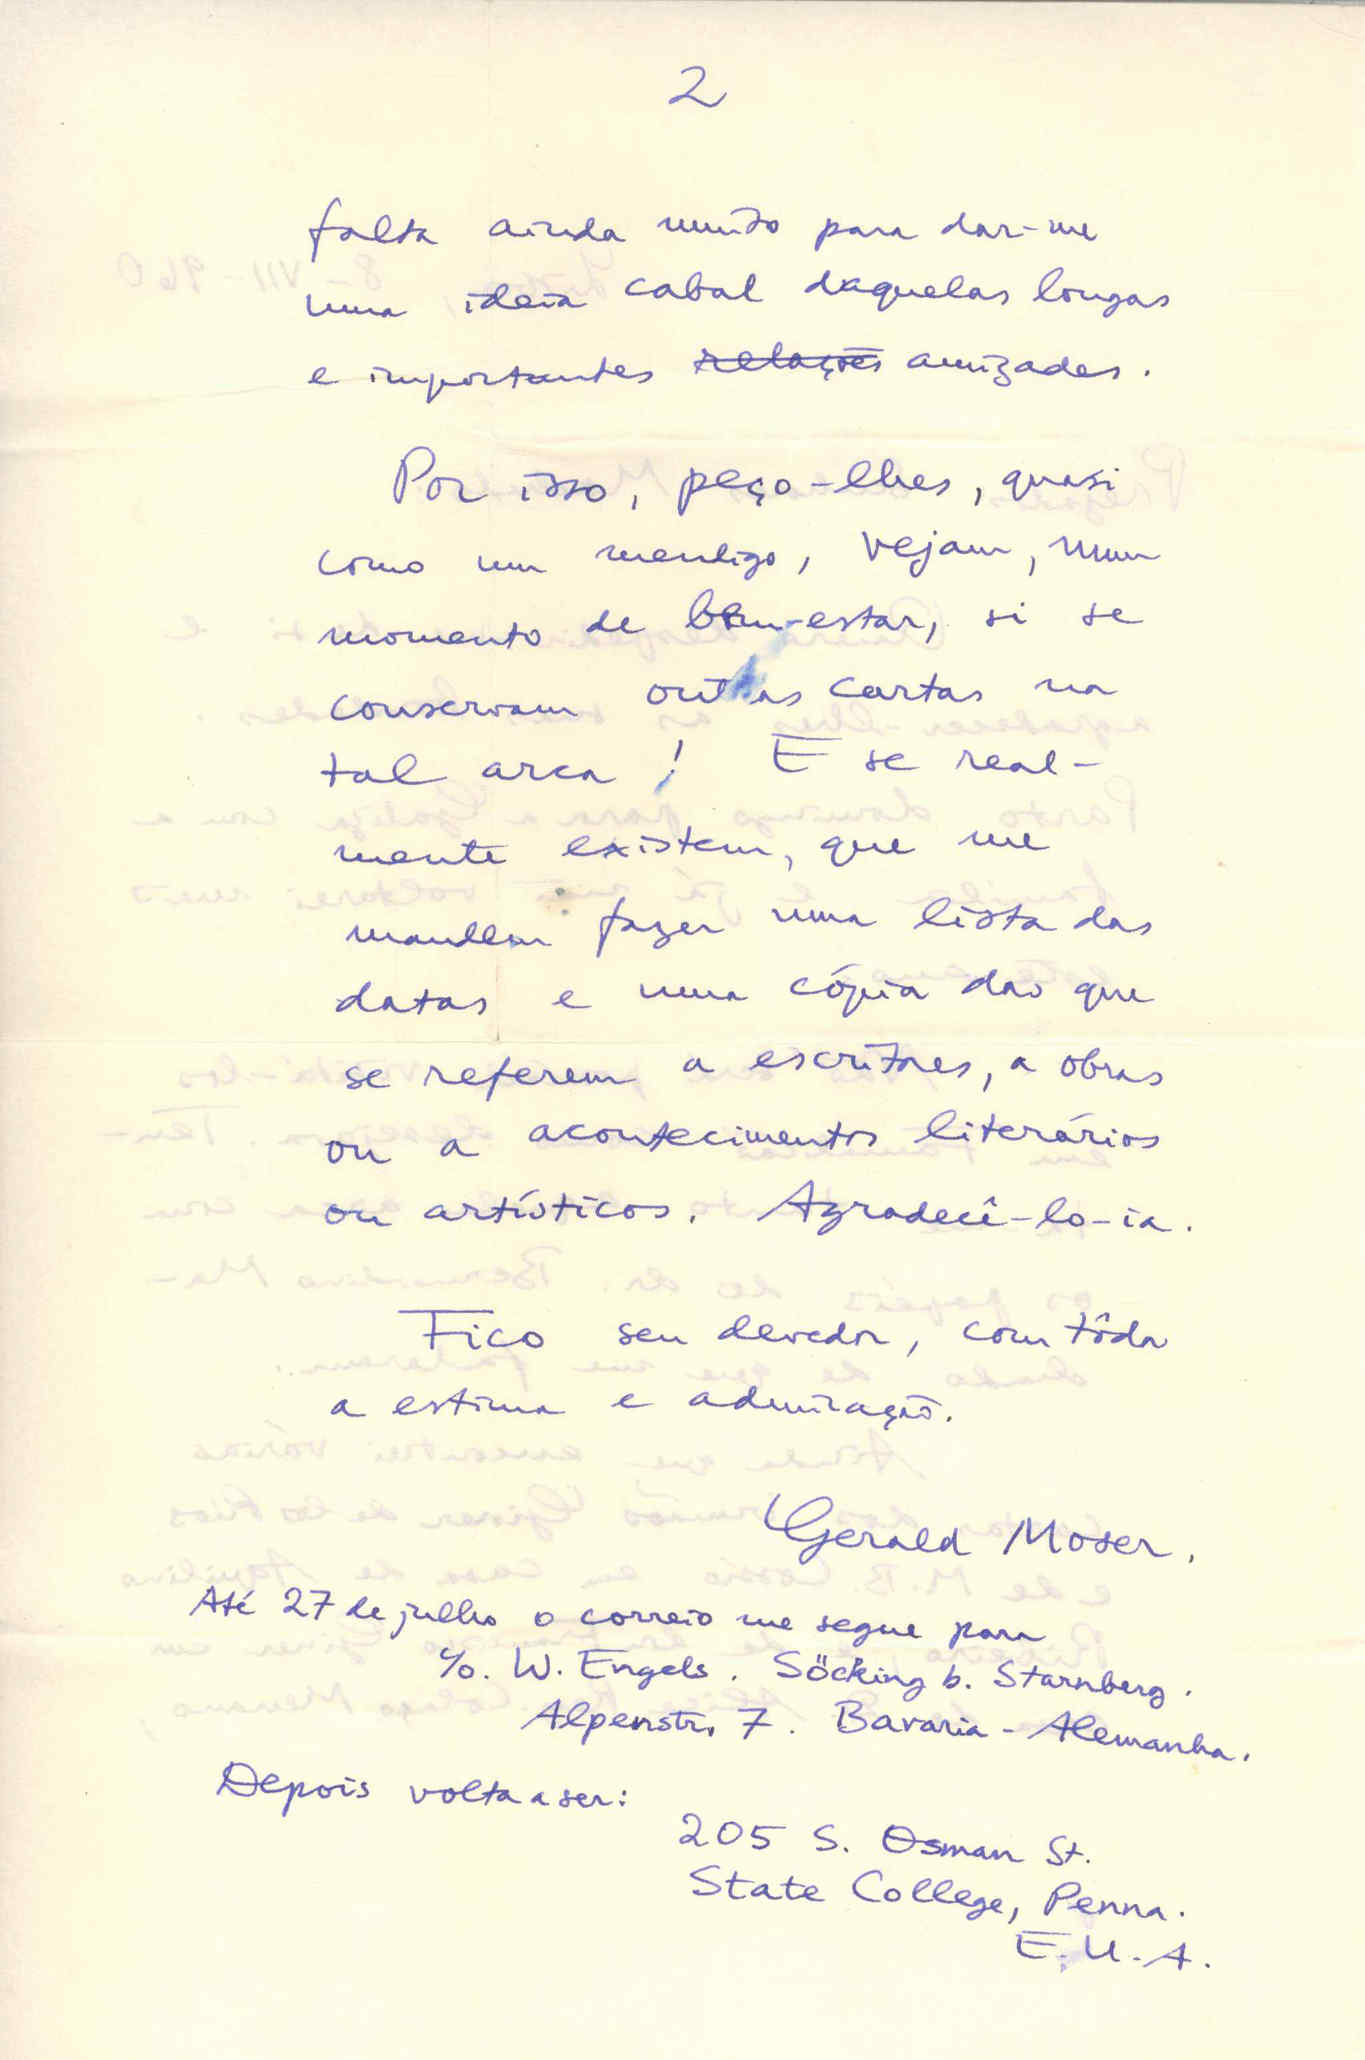 2
falta ainda muito para dar-me
uma ideia cabal daquelas longas
e importantes relações amizades.
Por isso, peço-lhes, quasi
como um mendigo, vejam, num
momento de bem-estar, si se
conservam outras cartas na
tal arca! E se real-
mente existem, que me
mandem fazer uma lista das
datas e uma cópia das que
se referem a escritores, a obras
ou a acontecimentos literários
ou artísticos. Agradecê-lo-ia.
Fico seu devedor, com tôda
a estima e admiração.
Gerald Moser.
Até 27 de julho o correio me segue para
c/o. W. Engels. Söcking b. Starnberg.
Alpenstr. 7. Bavaria - Alemanha.
Depois volta a ser:
205 S. Osman St.
State College, Penna.
E.U.A.